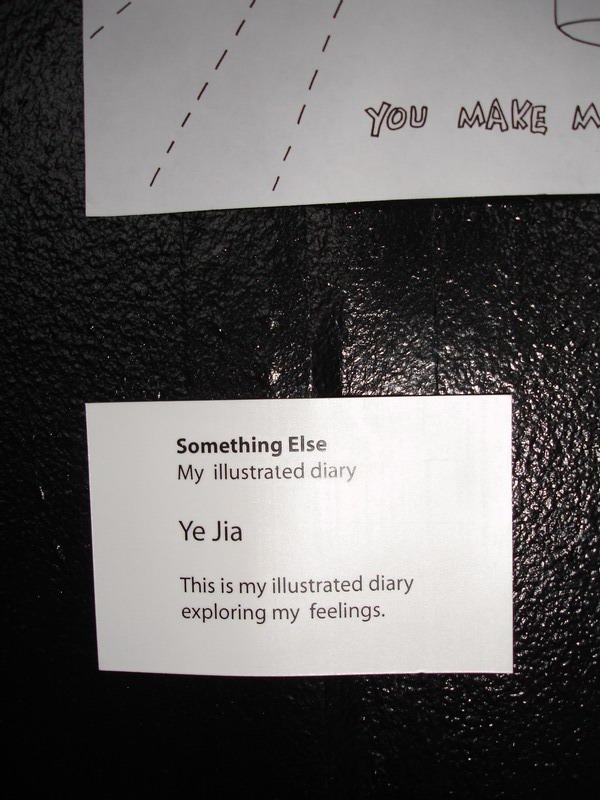 YOU MAKE
Something Else
My illustrated diary
Ye Jia
This is my illustrated diary
exploring my feelings.